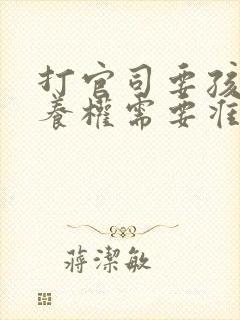 打官司要孩
養權需要准
蔣潔敏